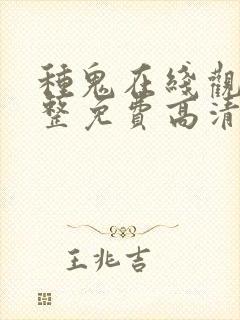 種鬼在綫觀
整免費高清
王兆吉